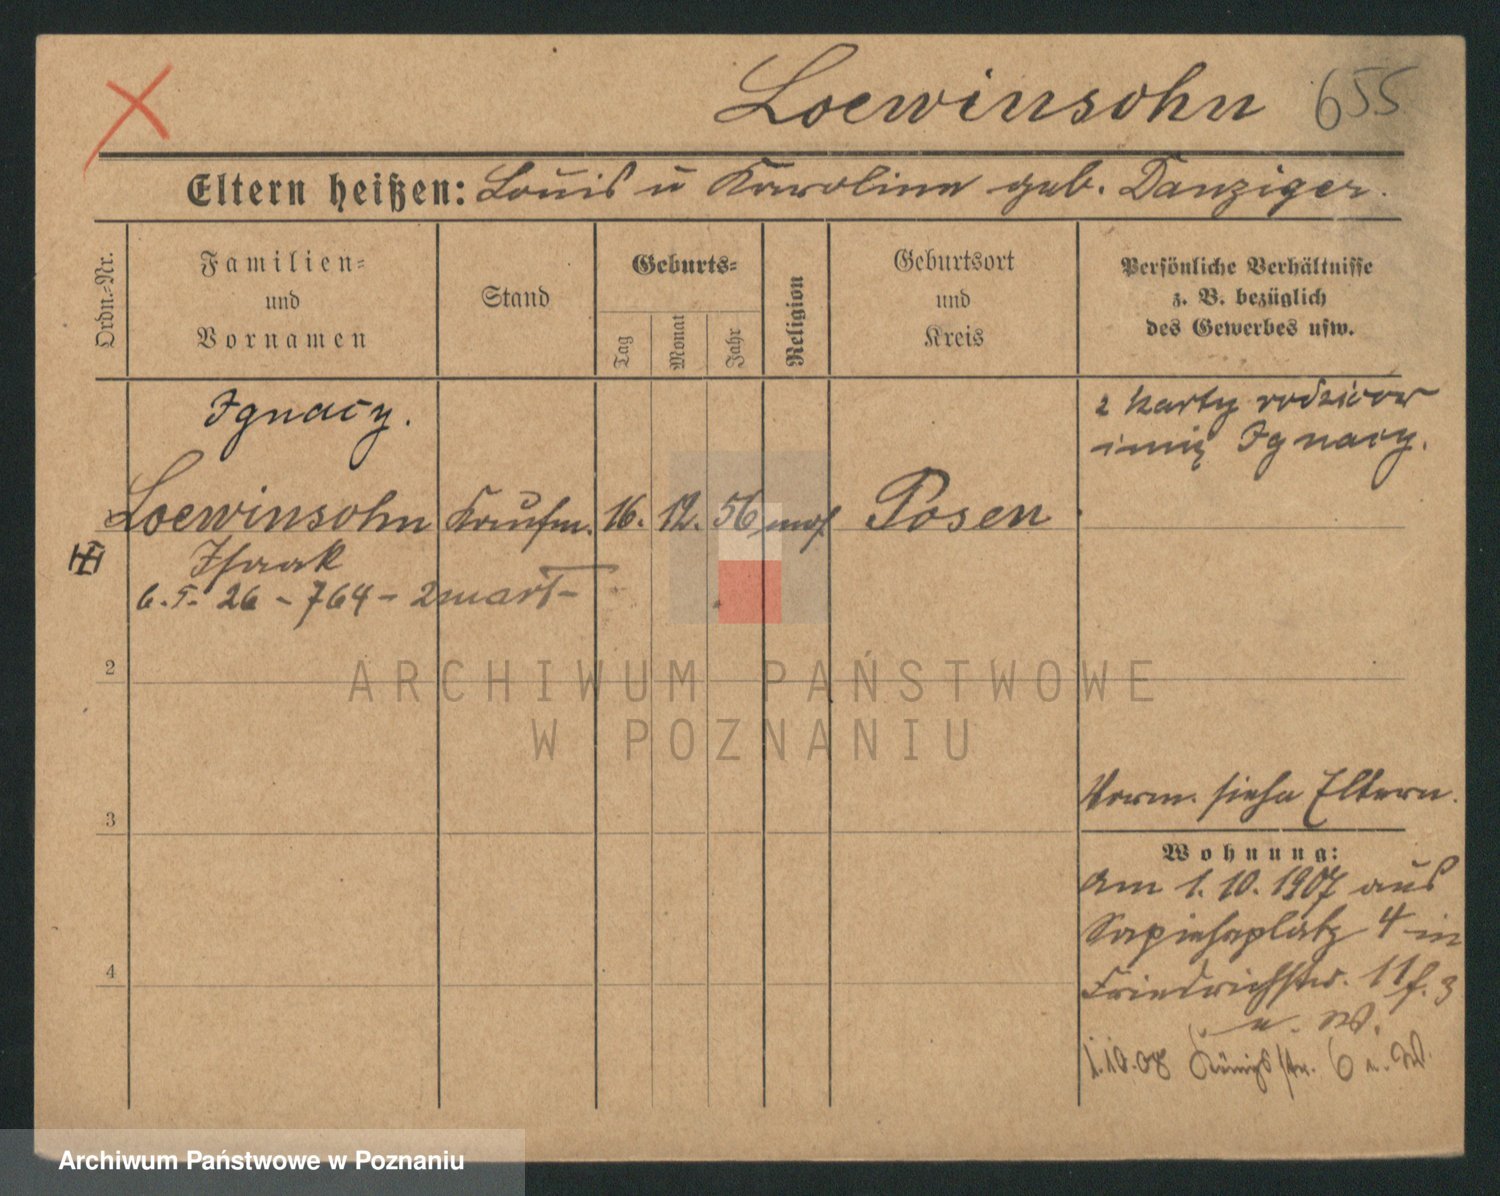 Loewinsohn 655
Eltern heißen: Louis u Karoline geb. Danziger.
Ordn.-Nr.
Familien-
und
Vornamen
Stand
Geburts-
Tag
Monat
Jahr
Religion
Geburtsort
und
Kreis
Persönliche Verhältnisse
z. B. bezüglich
des Gewerbes usw.
Ignacy.
z karty rodziców
imię Ignacy.
1 Loewinsohn Kaufm. 16. 12. 56 mos. Posen
Isaak
6.5.26 - 764 - 2
2
3
4
Verm. siehe Eltern.
Wohnung:
Am 1. 10. 1907 aus
Sapiehaplatz 4 in
Friedrichstr. 11 f. 3
u. W.
1.10.08 Königsstr. 6 u. W.
ARCHIWUM PAŃSTWOWE
W POZNANIU
Archiwum Państwowe w Poznaniu